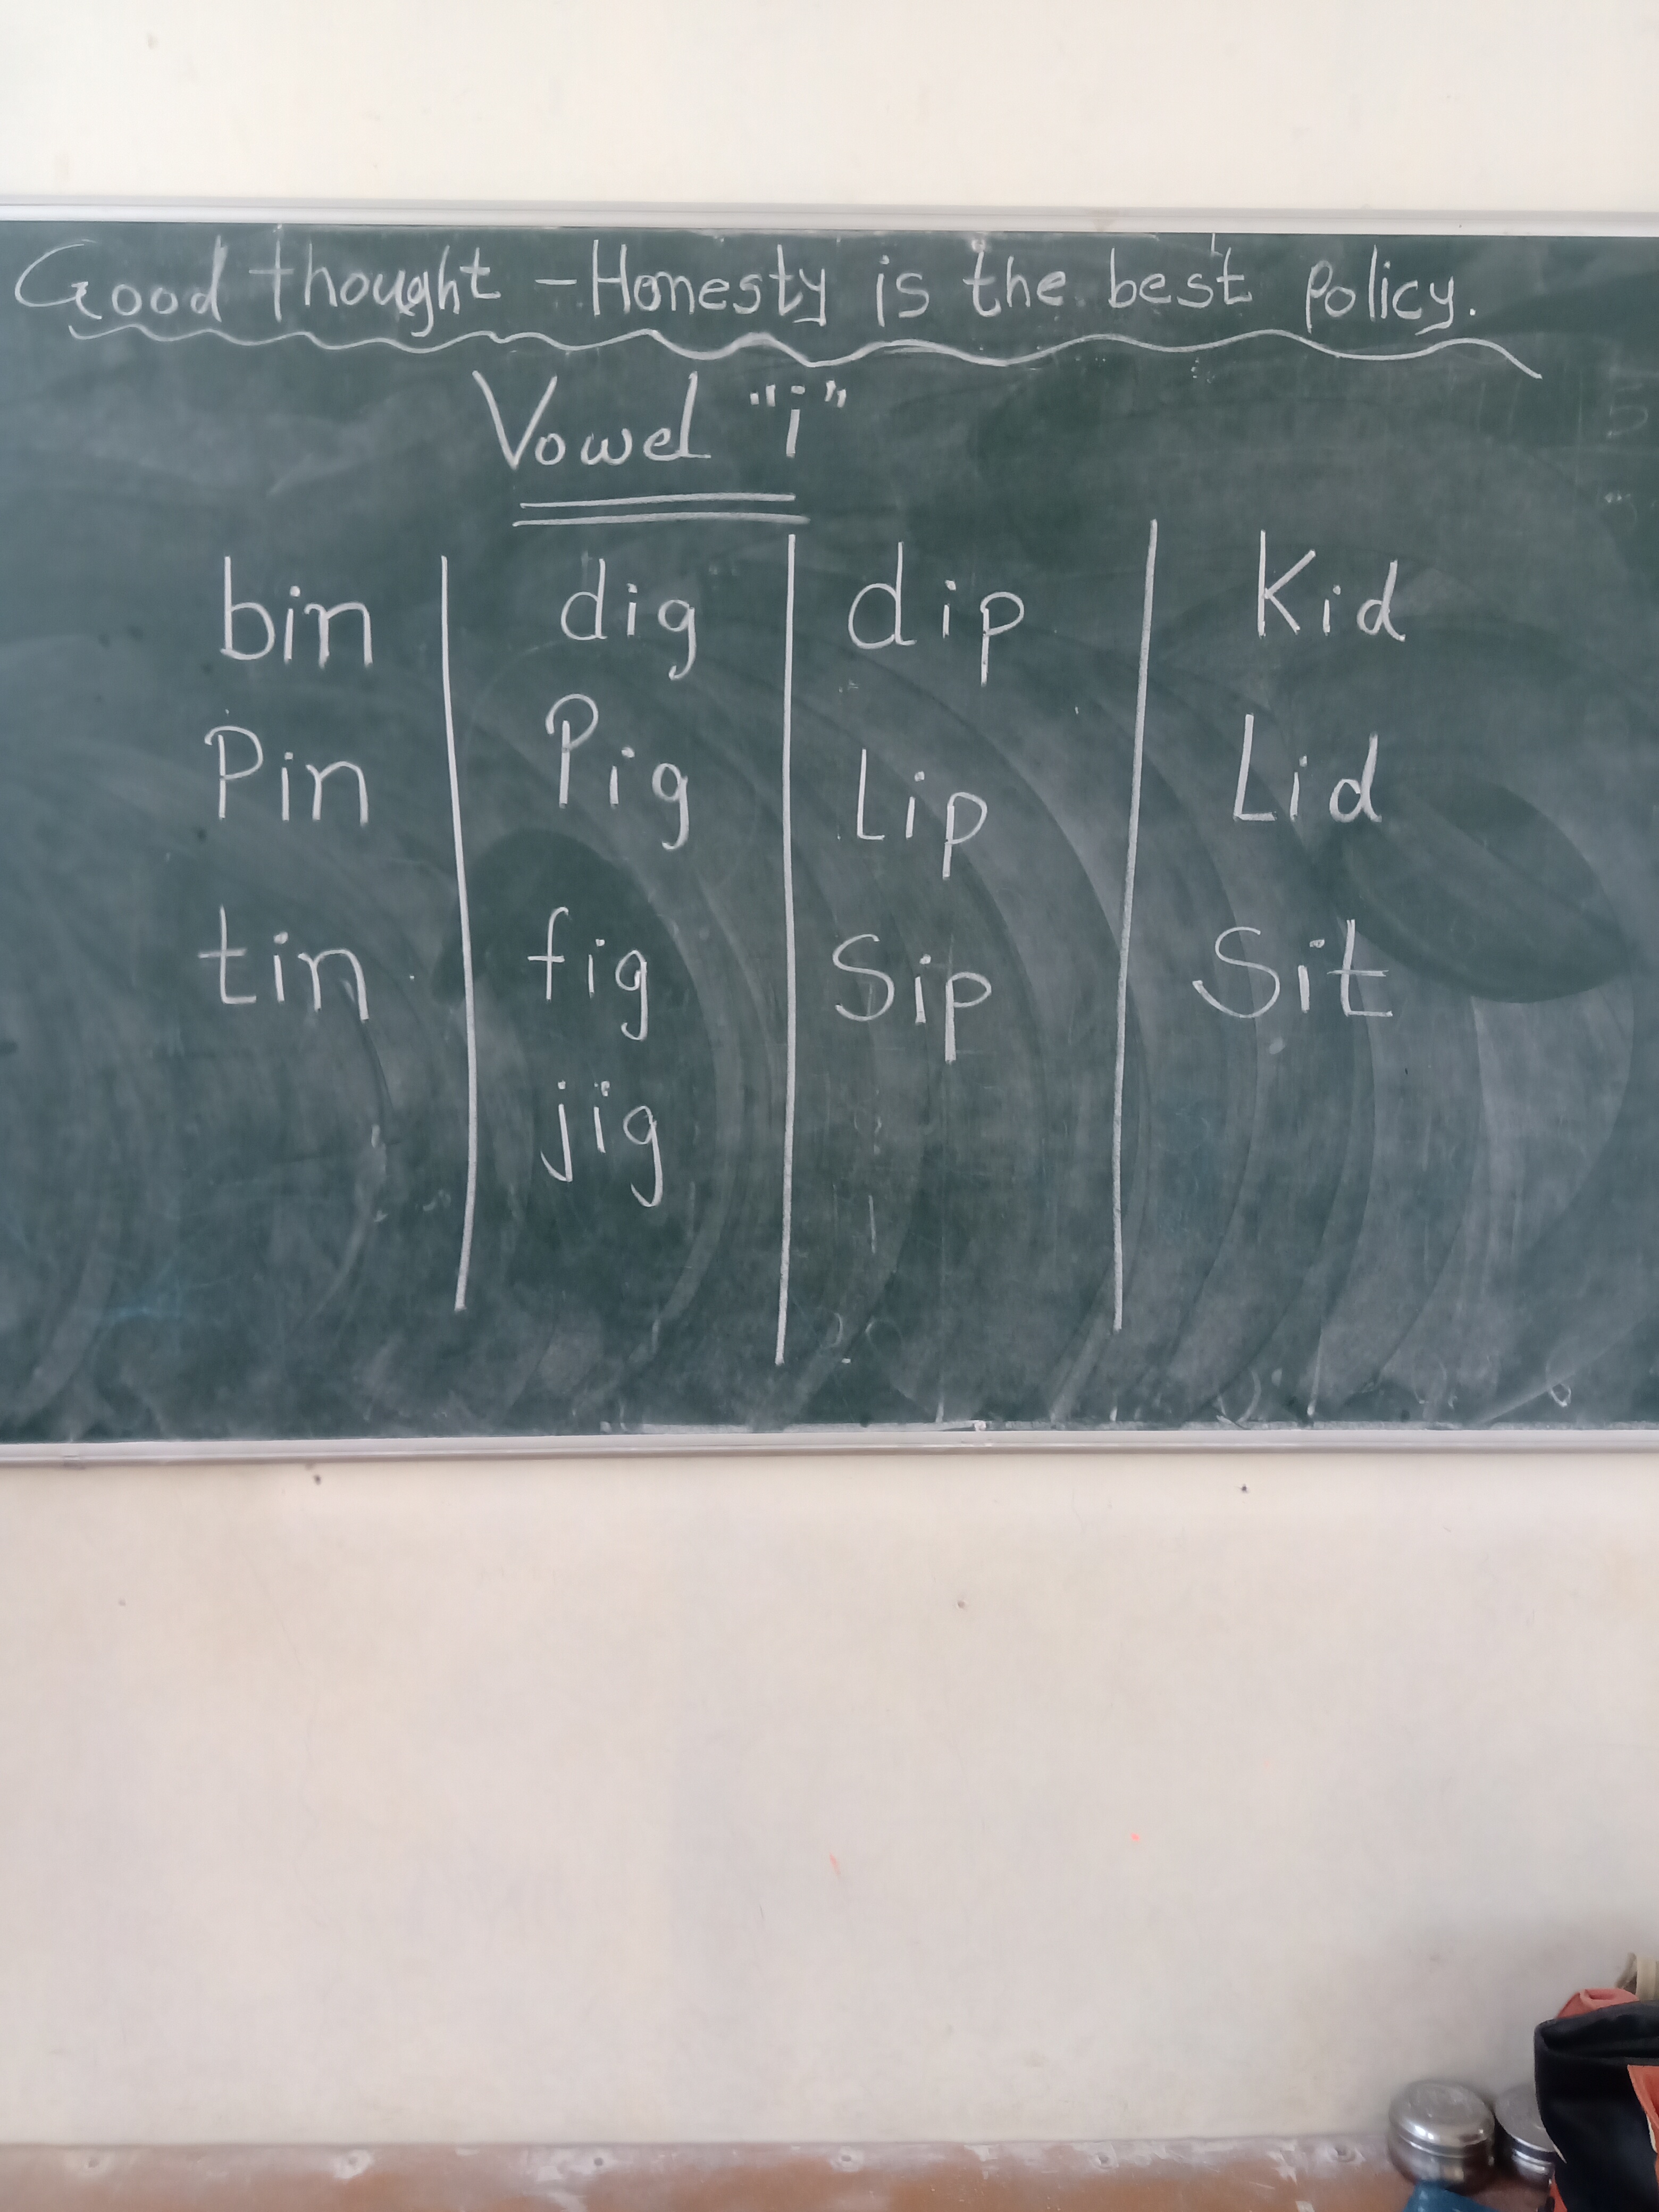 Good thought - Honesty is the best Policy.
Vowel "i"
bin dig dip Kid
Pin Pig Lip Lid
tin fig Sip Sit
jig